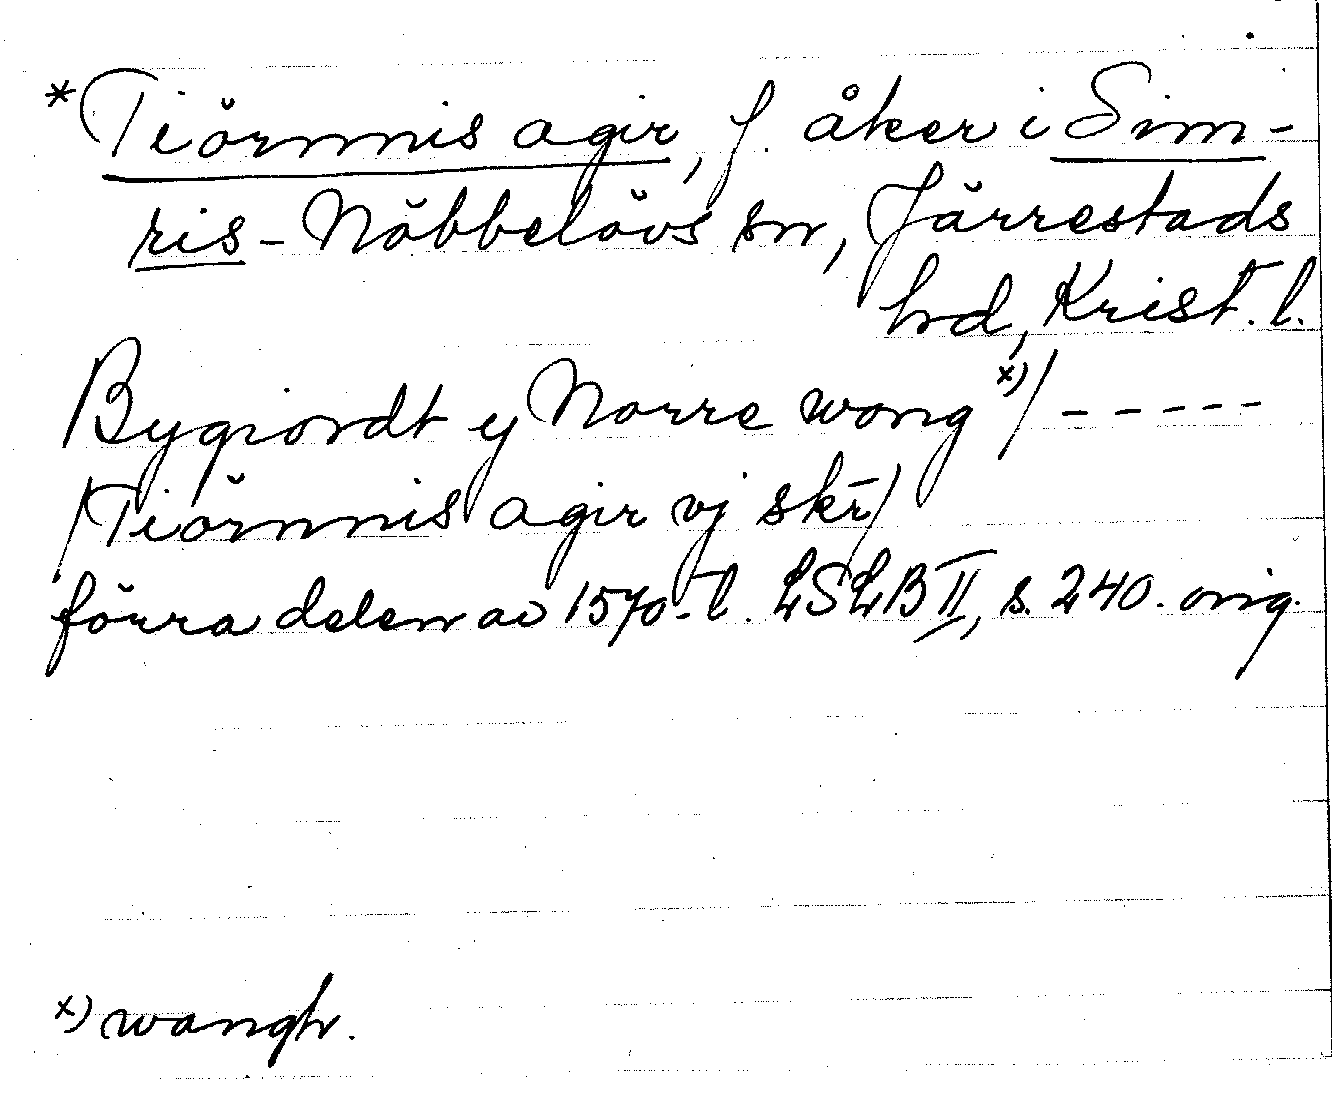 *Tiörnnis agir, f. åker i Sim-
ris-Nöbbelövs sn, Järrestads
hrd, Krist. l.
Bygiordt y Norre wong x)/ -----
/Tiörnnis agir vj skr/
förra delen av 1570-t. LSLB II, s. 240. orig.
x) wangh.